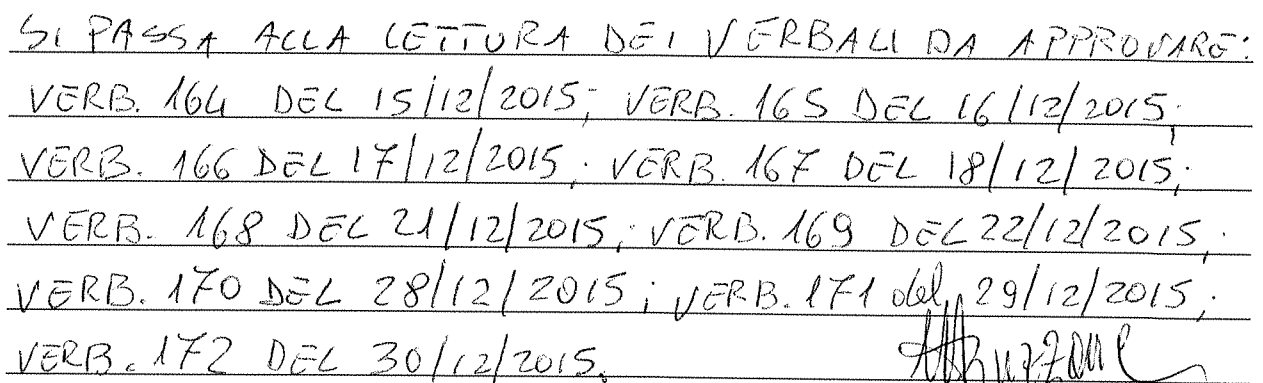 SI PASSA ALLA LETTURA DEI VERBALI DA APPROVARE:
VERB. 164 DEL 15/12/2015; VERB. 165 DEL 16/12/2015;
VERB. 166 DEL 17/12/2015; VERB. 167 DEL 18/12/2015;
VERB. 168 DEL 21/12/2015; VERB. 169 DEL 22/12/2015;
VERB. 170 DEL 28/12/2015; VERB. 171 del 29/12/2015;
VERB. 172 DEL 30/12/2015.